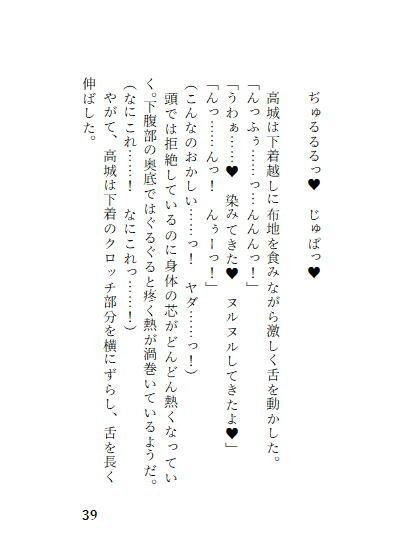 ぢゅるるるっ♥　じゅぱっ♥
高城は下着越しに布地を食みながら激しく舌を動かした。
「んっふぅ……っ…んんんっ！」
「うわぁ……♥　染みてきた♥　ヌルヌルしてきたよ♥」
「んっ……んっ！　んぅーっ！」
(こんなのおかしい……っ！　ヤダ……っ！)
頭では拒絶しているのに身体の芯がどんどん熱くなってい
く。下腹部の奥底ではぐるぐると疼く熱が渦巻いているようだ。
(なにこれ……！　なにこれっ……！)
やがて、高城は下着のクロッチ部分を横にずらし、舌を長く
伸ばした。
39